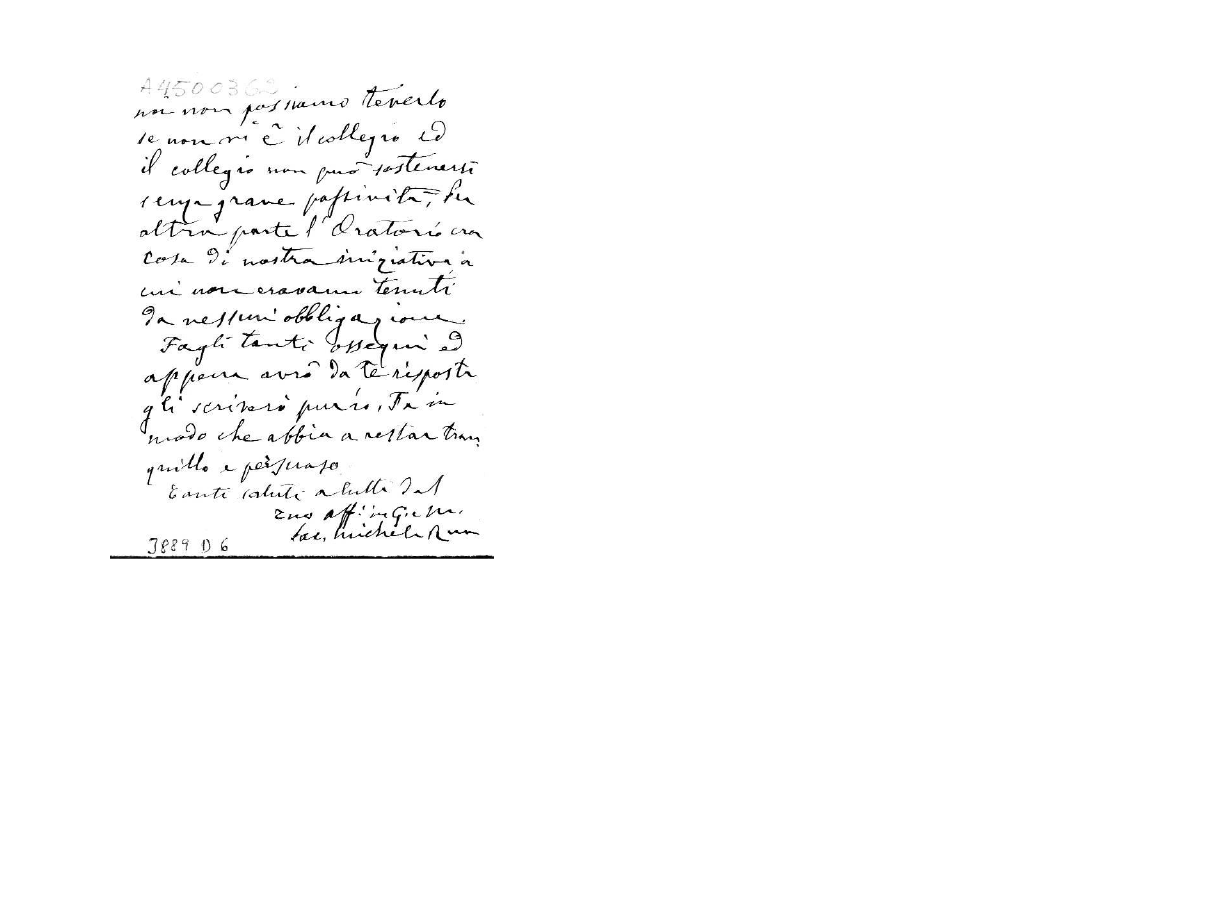 A4500362
noi non possiamo tenerlo
se non vi è il collegio ed
il collegio non può sostenersi
senza grave passività, Per
altra parte l'Oratorio era
cosa di nostra iniziativa a
cui non eravamo tenuti
da nessun obbligazione.
Fagli tanti ossequi ed
appena avrò da te risposta
gli scriverò pur io, Fa in
modo che abbia a restar tran
quillo e persuaso
Tanti saluti a tutti dal
Tuo aff. in G. e M.
Sac, Michele Rua
3889 D 6